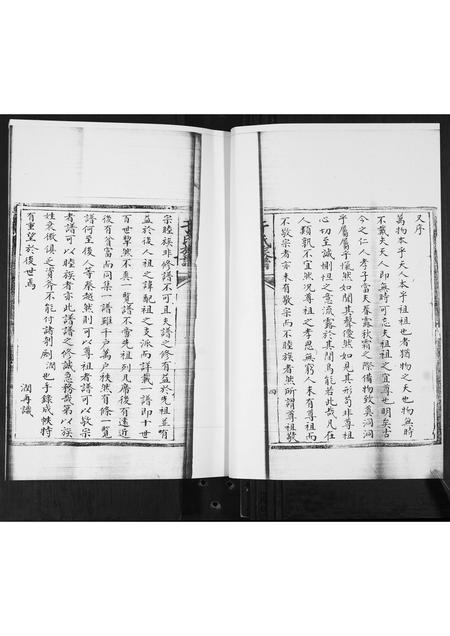 又序
萬物本乎天人本乎祖祖也者猶物之天也物無時
不戴夫天人即無時可忘夫祖祖之宜尊也明矣古
今之仁人孝子當天春露秋霜之際備物致奠洞洞
乎屬屬乎愾然如聞其聲僾然如見其形苟非尊祖
心切至誠惻怛之意流露於其間烏能若此哉凡在
人類孰不宜然况尊祖之孝思無窮人未有尊祖而
不敬宗者亦未有敬宗而不睦族者然所謂尊祖敬
四
宗睦族非修譜不可且夫譜之修有益於先祖並有
益於後人祖之諱配祖之支派而詳載一譜即十世
百世犂然不爽一覽譜不啻先祖列几席後有遠近
後有貧富而同集一譜雖千户萬户秩然有條一覽
譜何至後人等秦越然則可以尊祖者譜可以敬宗
者譜可以睦族者亦此譜譜之修誠急務哉第以族
姓衆微俱乏資斧不能付諸剞劂潤也手錄成帙特
有重望於後世焉
潤再識